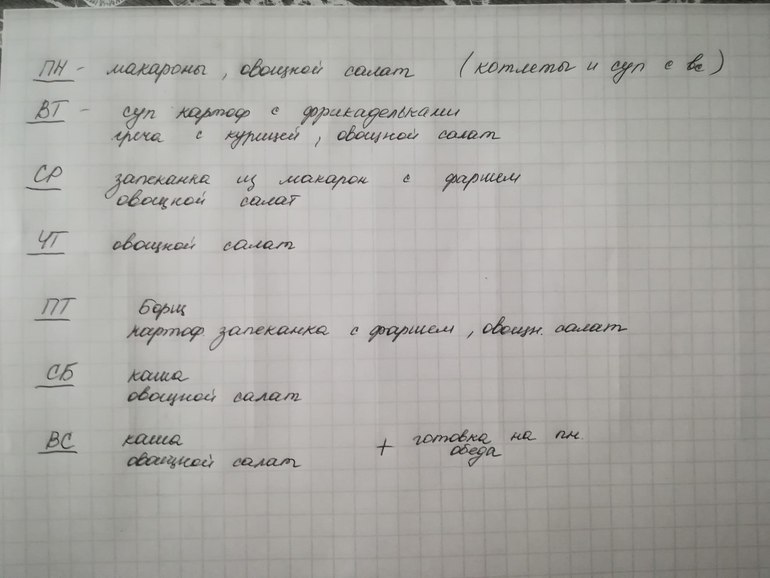 ПН - макароны, овощной салат (котлеты и суп с вс)
ВТ - суп картоф с фрикадельками
греча с курицей, овощной салат
СР запеканка из макарон с фаршем
овощной салат
ЧТ овощной салат
ПТ Борщ
картоф. запеканка с фаршем, овощн. салат
СБ каша
овощной салат
ВС каша + готовка на пн.
овощной салат обеда